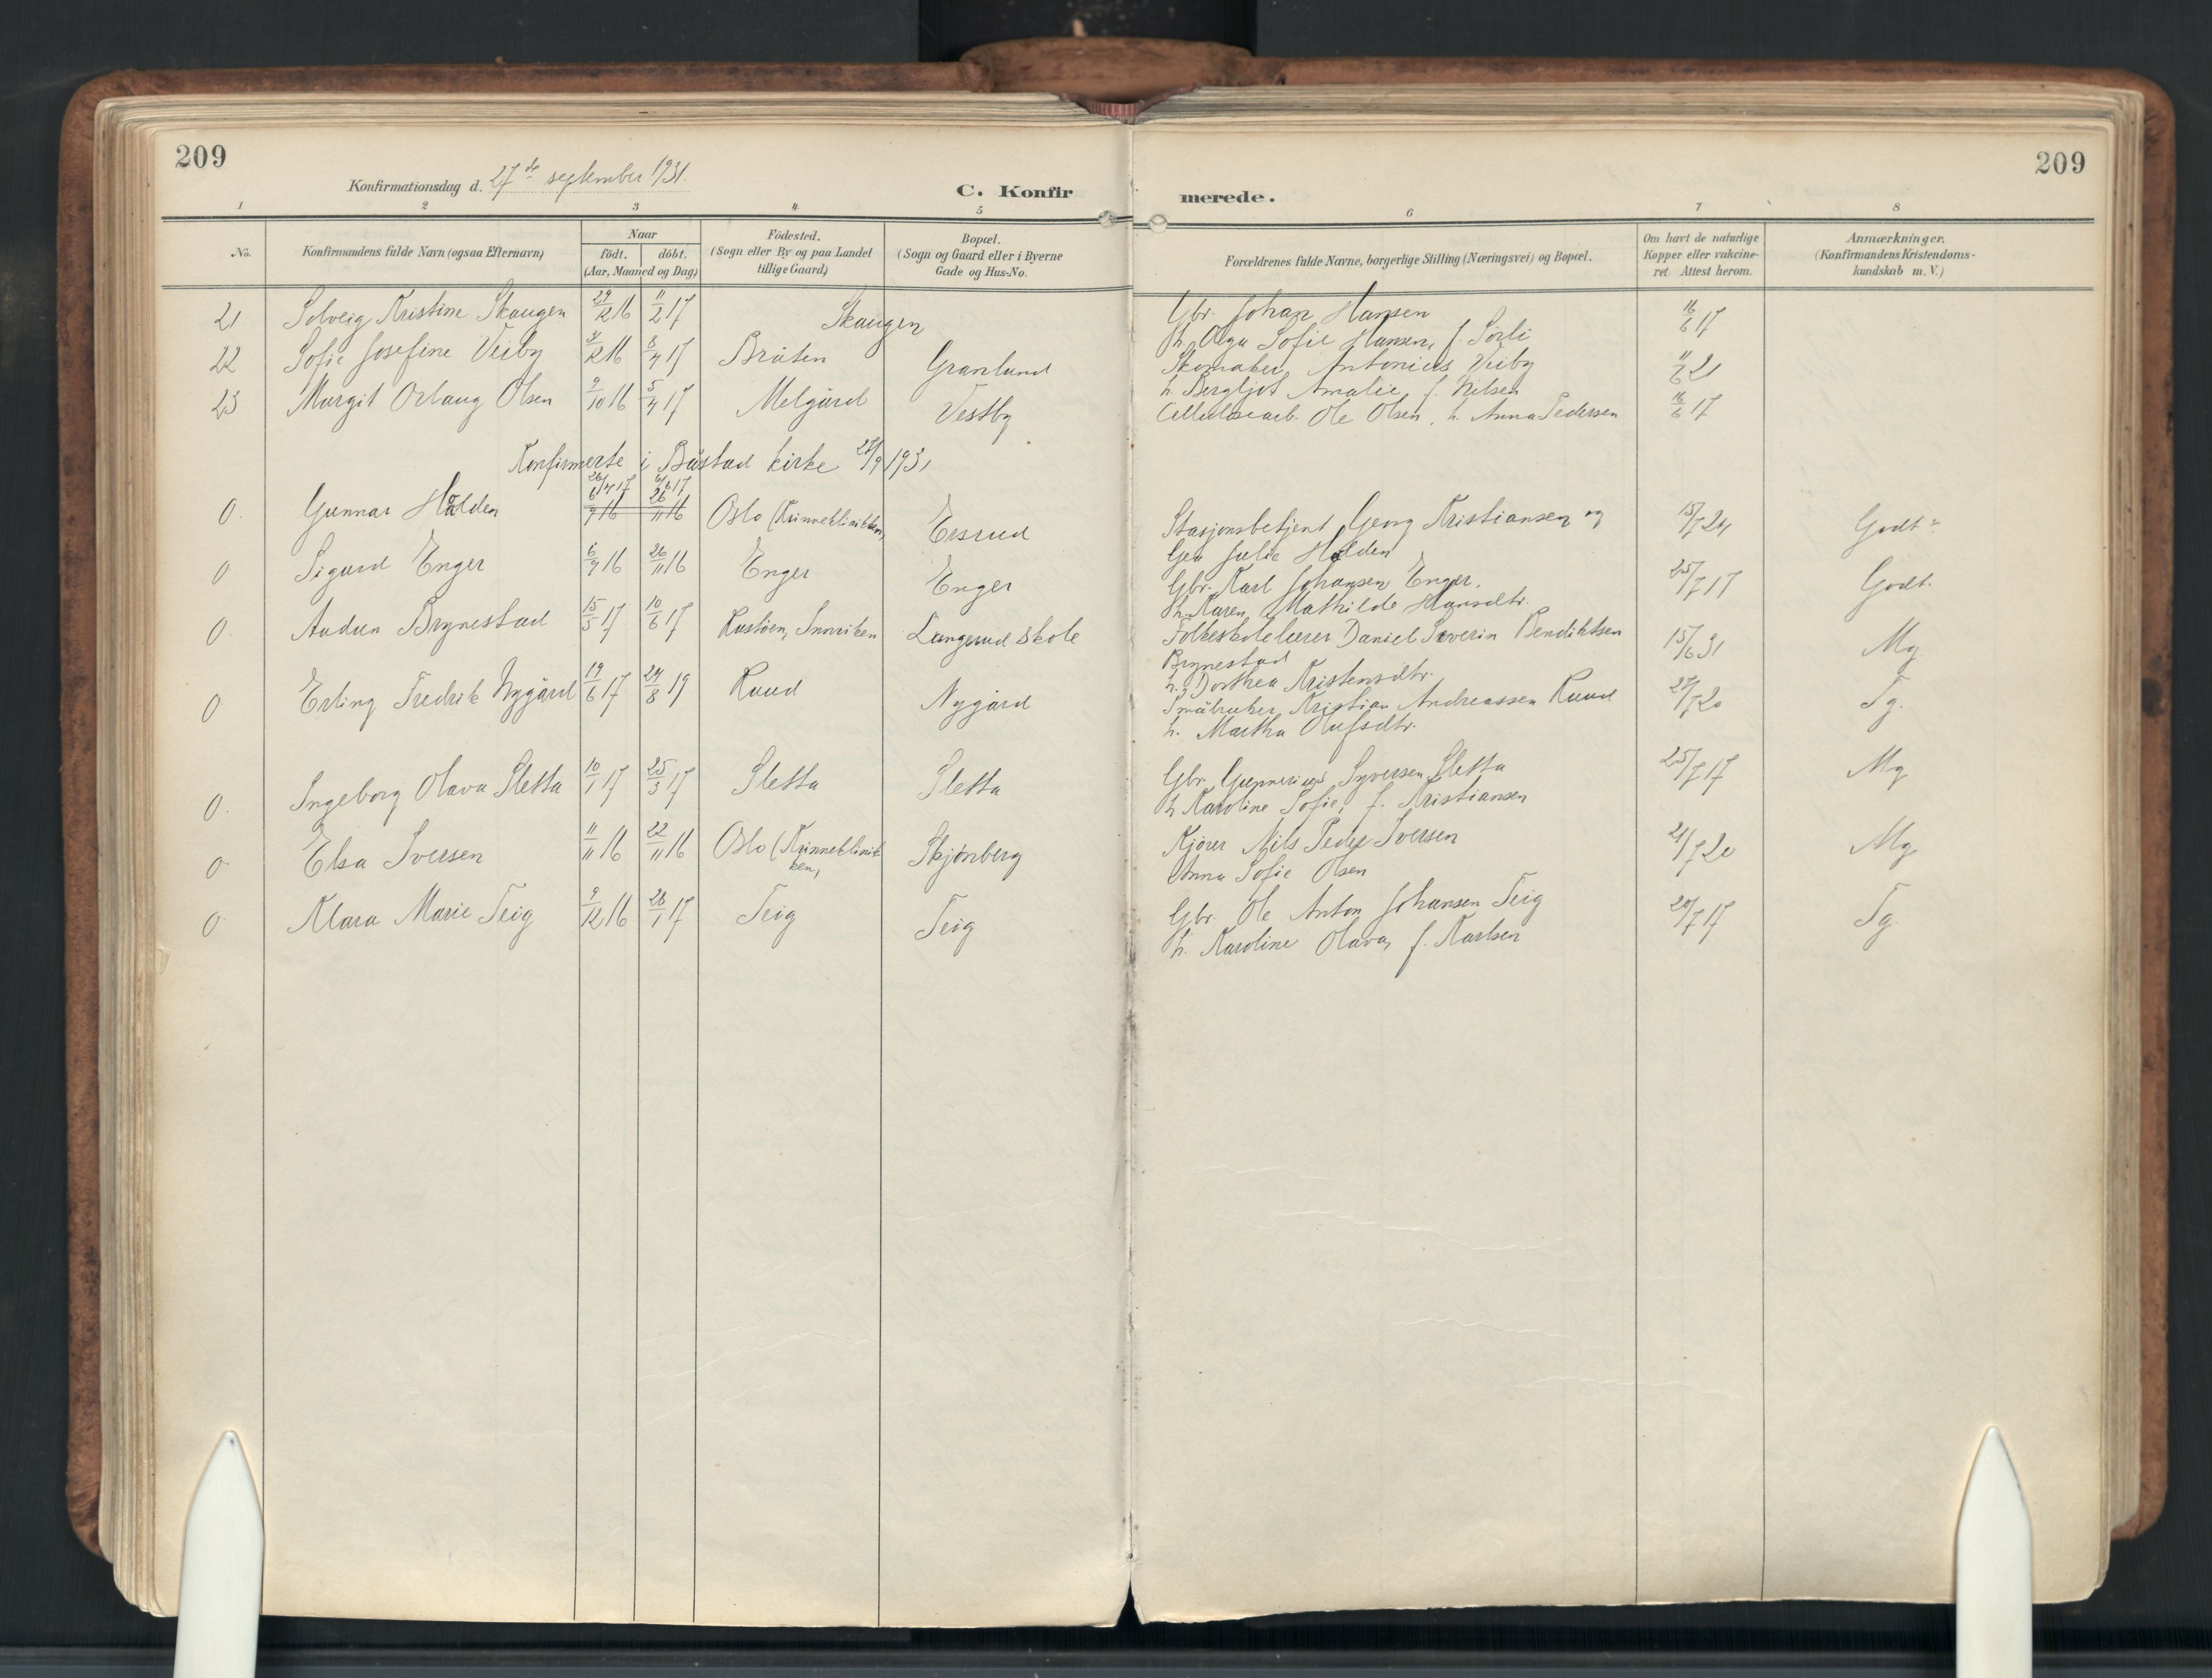 209
209
Konfirmationsdag d. 27de september 1931.
C. Konfir
merede.
1 2 3 4 5 6 7 8
No. Konfirmandens fulde Navn (ogsaa Efternavn) Naar Födested. Bopæl. Forældrenes fulde Navne, borgerlige Stilling (Næringsvei) og Bopæl. Om havt de naturlige Anmærkninger.
födt. döbt. (Sogn eller By og paa Landet (Sogn og Gaard eller i Byerne Kopper eller vakcine- (Konfirmandens Kristendoms-
(Aar, Maaned og Dag) tillige Gaard) Gade og Hus-No. ret Attest herom. kundskab m. V.)
21 Solveig Kristine Skaugen 29/12 16 11/2 17 Skaugen Gbr. Johan Hansen 16/6 17
h. Olga Sofie Hansen, f. Sørli
22 Sofie Josefine Veiby 3/12 16 8/4 17 Bråten Granlund Skomaker Antonius Veiby 11/6 21
h. Bergljot Amalie f. Nilsen
23 Margit Orlaug Olsen 9/10 16 5/4 17 Melgård Vestby Cellulosearb. Ole Olsen, h. Anna Pedersen 16/6 17
Konfirmerte i Båstad kirke 27/9 1931
26/4 17 6/6 17
0. Gunnar Halden 6/9 16 26/11 16 Oslo (Kvinneklinikken) Ersrud Stasjonsbetjent Georg Kristiansen og 15/7 24 Godt
Gea Julie Halden
0 Sigurd Enger 6/9 16 26/11 16 Enger Enger Gbr. Karl Johansen Enger. 25/7 17 Godt.
h. Karen Mathilde Hansdtr.
0. Audun Brynestad 15/5 17 10/6 17 Rustøen, Langerud skole Folkeskolelærer Daniel Severin Bendiktsen 15/6 31 Mg
Brynestad
h. Dorthea Kristensdtr.
0. Erling Fredrik Nygård 19/6 17 24/8 19 Ruud Nygård Småbruker Kristian Andreassen Ruud 27/7 20 Tg.
h. Martha Olufsdtr.
0. Ingeborg Olava Sletta 10/1 17 25/3 17 Sletta Sletta Gbr. Gunnerius Syversen Sletta 25/7 17 Mg
h. Karoline Sofie, f. Kristiansen
0. Elsa Iversen 11/11 16 22/11 16 Oslo (Kvinneklinik Skjønberg Kjører Nils Peder Iversen 21/7 20 Mg
ken) Anna Sofie Olsen
0. Klara Marie Teig 9/12 16 28/1 17 Teig Teig Gbr. Ole Anton Johansen Teig 20/7 17 Tg.
h. Karoline Olava, f. Karlsen